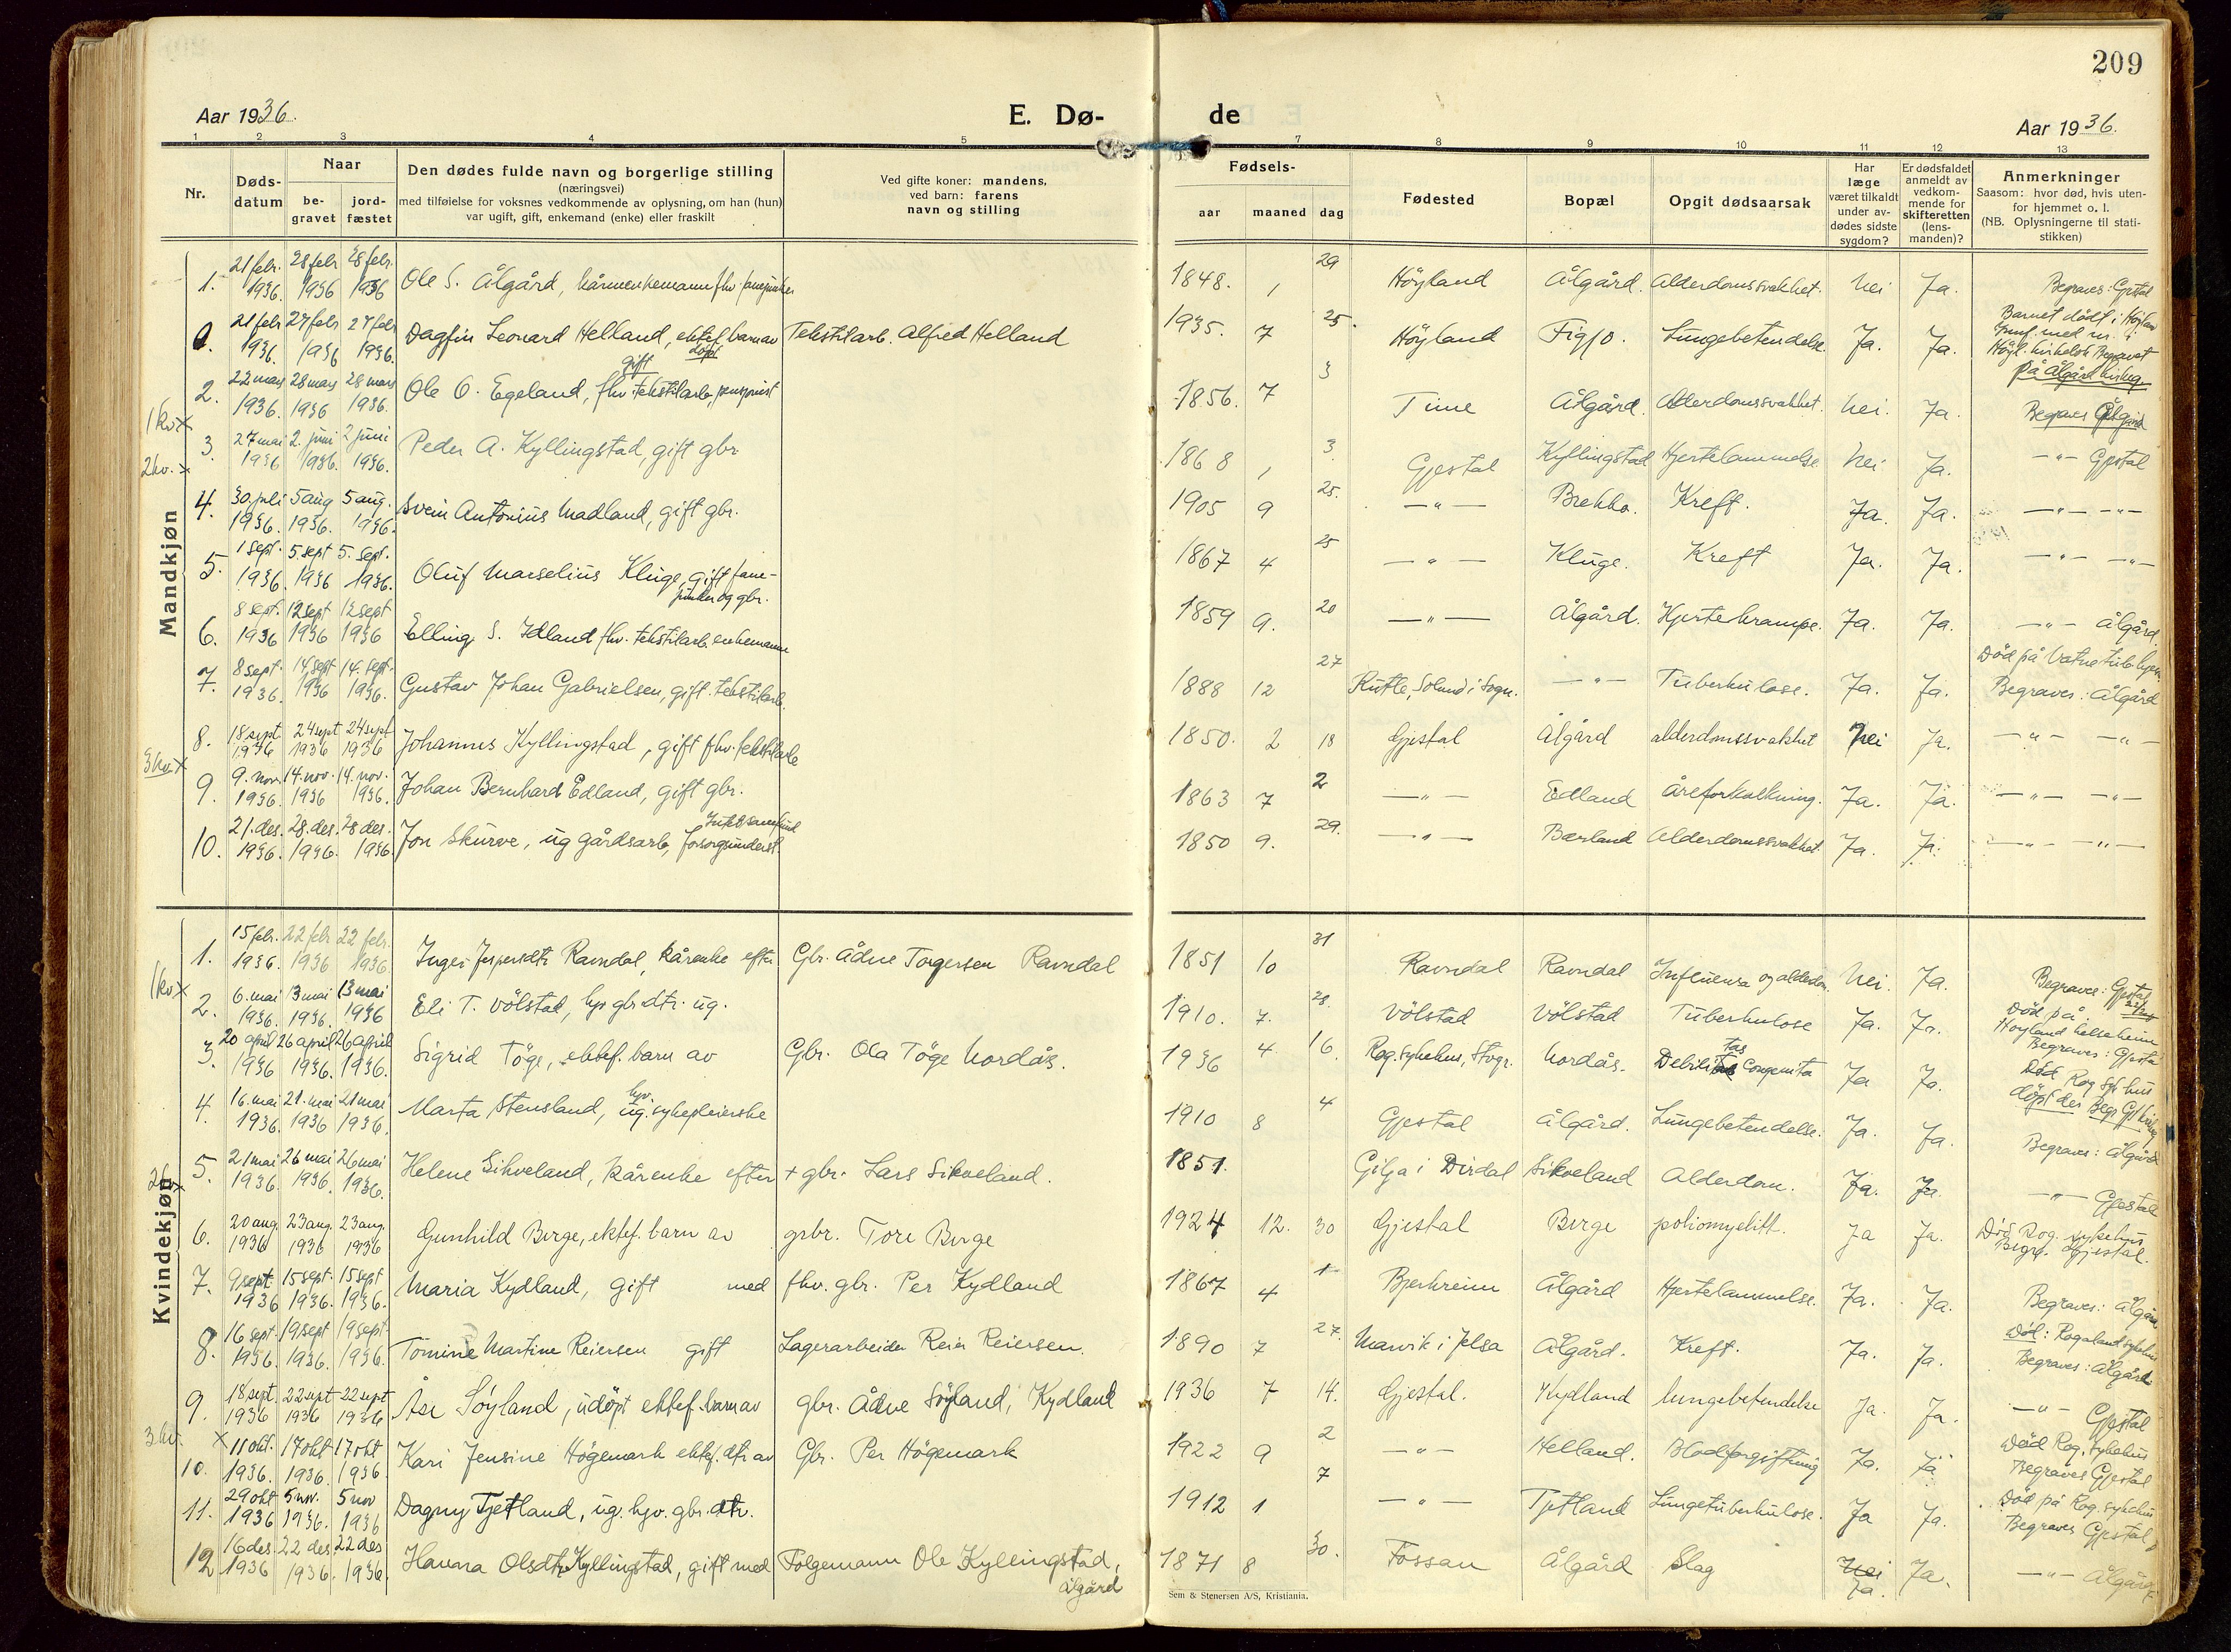 209
Aar 1936.
E. Dø- de
Aar 1936.
1 2 3 4 5 7 8 9 10 11 12 13
Nr.
Døds-
datum
Naar
be-
gravet
jord-
fæstet
Den dødes fulde navn og borgerlige stilling
(næringsvei)
med tilføielse for voksnes vedkommende av oplysning, om han (hun)
var ugift, gift, enkemand (enke) eller fraskilt
Ved gifte koner: mandens,
ved barn: farens
navn og stilling
Fødsels-
aar maaned dag
Fødested
Bopæl
Opgit dødsaarsak
Har
læge
været tilkaldt
under av-
dødes sidste
sygdom?
Er dødsfaldet
anmeldt av
vedkom-
mende for
skifteretten
(lens-
manden)?
Anmerkninger
Saasom: hvor død, hvis uten-
for hjemmet o. l.
(NB. Oplysningerne til stati-
stikken)
Mandkjøn
1. 21 febr. 1936. 28 febr 1936 28 febr. 1936 Ole S. Ålgård, 1848. 1 29 Höyland Ålgård. Alderdomssvakhet. Nei Ja. Begraves: Gjestal
0. 21 febr 1936. 27 febr 1936 27 febr 1936. Dagfin Leonard Helland, ektef. barn av Tekstilarb. Alfred Helland 1935. 7 25. Höyland Figjo. Lungebetendelse. Ja. Ja. Barnet dödt i Höyland
på Ålgård kirkeg
2. 22 mars 1936. 28 mars 1936 28 mars 1936. Ole O. Egeland, gift fhv. tekstilarb., pensjonist 1856. 7 3 Time Ålgård. Alderdomssvakhet. Nei. Ja. Begraves Ålgård
1 kv x
3. 27 mai 1936 2. juni 1936. 2 juni 1936. Peder A. Kyllingstad, gift gbr. 1868 1 3. Gjestal Kyllingstad Hjertelammelse Nei Ja. —"— Gjestal
2 kv. x
4. 30. juli 1936. 5 aug 1936. 5 aug. 1936. Svein Antonius Madland, gift gbr. 1905 9 25. —"— Brekko. Kreft. Ja. Ja. —"— —"—
5. 1 sept. 1936. 5. sept 1936 5. sept. 1936. Oluf Marselius Kluge, gift fane-
junker og gbr. 1867 4 25 —"— Kluge. Kreft Ja. Ja. —"— —"—
6. 8 sept. 1936 12 sept 1936 12 sept 1936 Elling S. Idland fhv. tekstilarb. enkemann 1859 9. 20 —"— Ålgård. Hjertekrampe. Ja. Ja. —"— Ålgård
7. 8 sept. 1936. 14 sept 1936 14. sept. 1936. Gustav Johan Gabrielsen, gift. tekstilarb. 1888 12 27 Rutle, Solund i Sogn. —"— Tuberkulose. Ja. Ja. Död på Vatne tub.hjem.
Begraves: Ålgård
8. 18 sept 1936 24 sept 1936 24 sept 1936 Johannes Kyllingstad, gift fhv. tekstilarb 1850. 2 18 Gjestal Ålgård alderdomssvakhet Nei Ja. —"— —"—
3 kv x
9. 9. nov 1936. 14. nov. 1936 14. nov. 1936. Johan Bernhard Edland, gift gbr. 1863 7 2 —"— Edland Åreforkalkning. Ja. Ja. —"— —"—
10. 21. des. 1936. 28. des. 1936. 28 des. 1936 Jon Skurve, ug gårdsarb, forsorgsunderst. 1850 9. 29. —"— Bærland Alderdomssvakhet. Ja. Ja. —"— —"—
Kvindekjøn
1. 15 febr. 1936. 22 febr 1936 22 febr. 1936 Inger Jespersdtr Ravndal, kårenke efter Gbr. Ådne Torgersen Ravndal 1851 10 31 Ravndal Ravndal Influensa og alderdom. Nei. Ja. Begraves: Gjestal
1 kv x
2. 6. mai 1936. 13 mai 1936. 13 mai 1936 Eli T. Völstad, hjv gbr.dtr. ug. 1910. 7. 28. Völstad Völstad Tuberkulose Ja. Ja. Död på
Höyland helseheim
Begraves: Gjestal
3. 20 april 1936 26 april 1936. 26 april 1936. Sigrid Töge, ektef. barn av Gbr. Ola Töge Nordås. 1936 4. 16. Rog. sykehus, Stvgr. Nordås. Debilitas Congenita Ja Ja. Död Rog sykhus
döpt der Begr Gj kirkeg
4. 16. mai 1936. 21. mai 1936 21 mai 1936. Marta Stensland, hjv. ug. sykepleierske 1910 8 4 Gjestal Ålgård. Lungebetendelse. Ja. Ja. Begraves: Ålgård
5. 21 mai 1936. 26 mai 1936. 26 mai 1936. Helene Sikveland, kårenke efter + gbr. Lars Sikveland. 1851. Gilja i Dirdal Sikveland Alderdom. Ja. Ja. —"— Gjestal
2 kv x
6. 20 aug 1936 23 aug. 1936 23 aug. 1936 Gunhild Berge, ektef. barn av grbr. Tore Berge 1924 12. 30 Gjestal Berge poliomyelitt. Ja Ja. Död Rog. sykehus
Begr. Gjestal.
7. 9 sept. 1936 15 sept. 1936. 15 sept 1936. Maria Kydland, gift med fhv. gbr. Per Kydland 1867 4 1 Bjerkreim Ålgård Hjertelammelse. Ja. Ja. Begraves: Ålgård
8. 16 sept. 1936. 19 sept 1936. 19 sept. 1936. Tomine Martine Reiersen gift Lagerarbeider Reier Reiersen. 1890 7 27. Marvik i Jelsa Ålgård. Kreft. Ja. Ja. Död: Rogaland sykehus
Begraves: Ålgård
9. 18 sept. 1936 22 sept 1936 22 sept 1936 Åse Söyland, udöpt ektef. barn av gbr. Ådne Söyland, Kydland 1936 7 14. Gjestal. Kydland lungebetendelse Ja. Ja. —"— Gjestal
3 kv. x
10. 11 okt. 1936. 17 okt 1936 17 okt 1936 Kari Jensine Högemark ektef. dtr av Gbr. Per Högemark 1922 9 2 —"— Helland. Blodforgiftning Ja. Ja Död Rog. sykehus
Begraves Gjestal
11. 29 okt 1936 5 nov. 1936. 5 nov 1936 Dagny Tjetland, ug. hjv. gbr. dtr. 1912 1 7 —"— Tjetland Lungetuberkulose. Ja Ja. Död på Rog. sykehus
Begraves Gjestal
12 16 des 1936 22 des 1936. 22 des 1936. Hanna Olsdtr Kyllingstad, gift med Folgemann Ole Kyllingstad,
Ålgård 1871 8 30. Fossan Ålgård Slag Nei Ja. Ja. —"— Ålgård
Sem & Stenersen A/S, Kristiania.